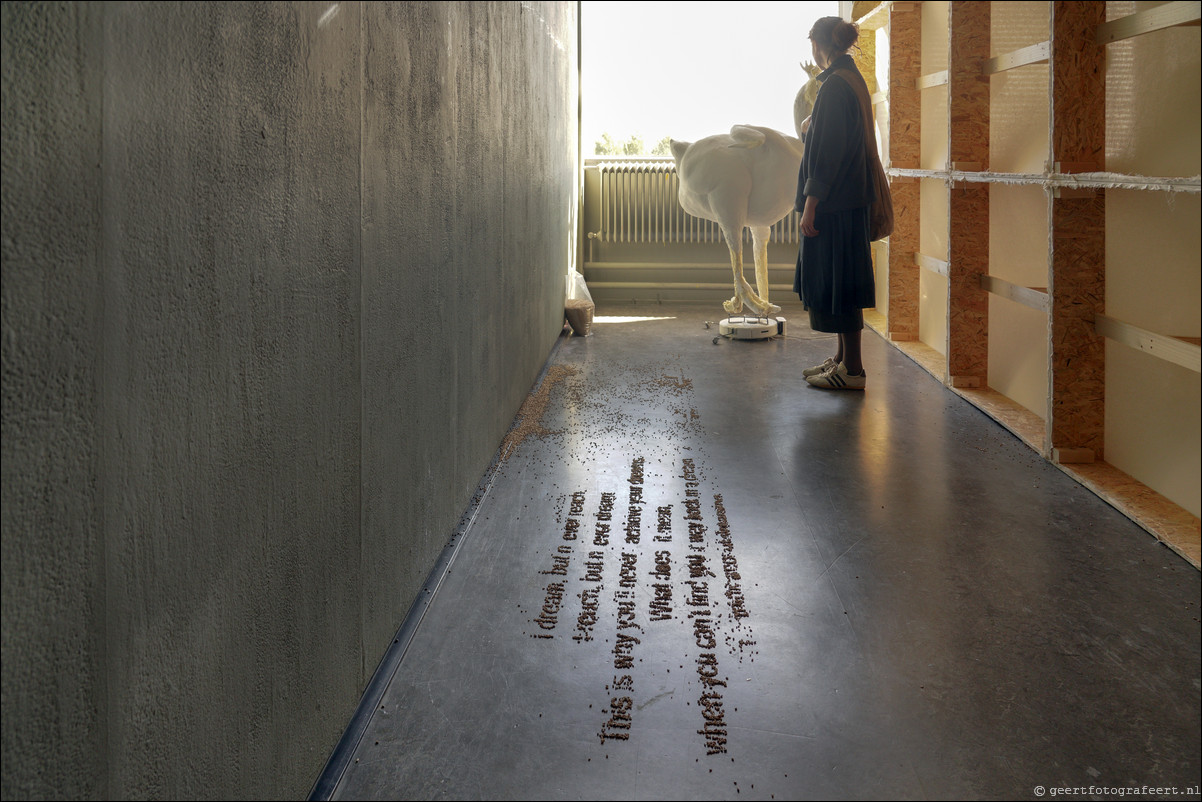 i dream, but n ever reach,
i reach, but n ever dream
This is way you'll never achieve your dreams.
What does it mean,
when you can't find you r way back in a dream
© geertfotografeert.nl